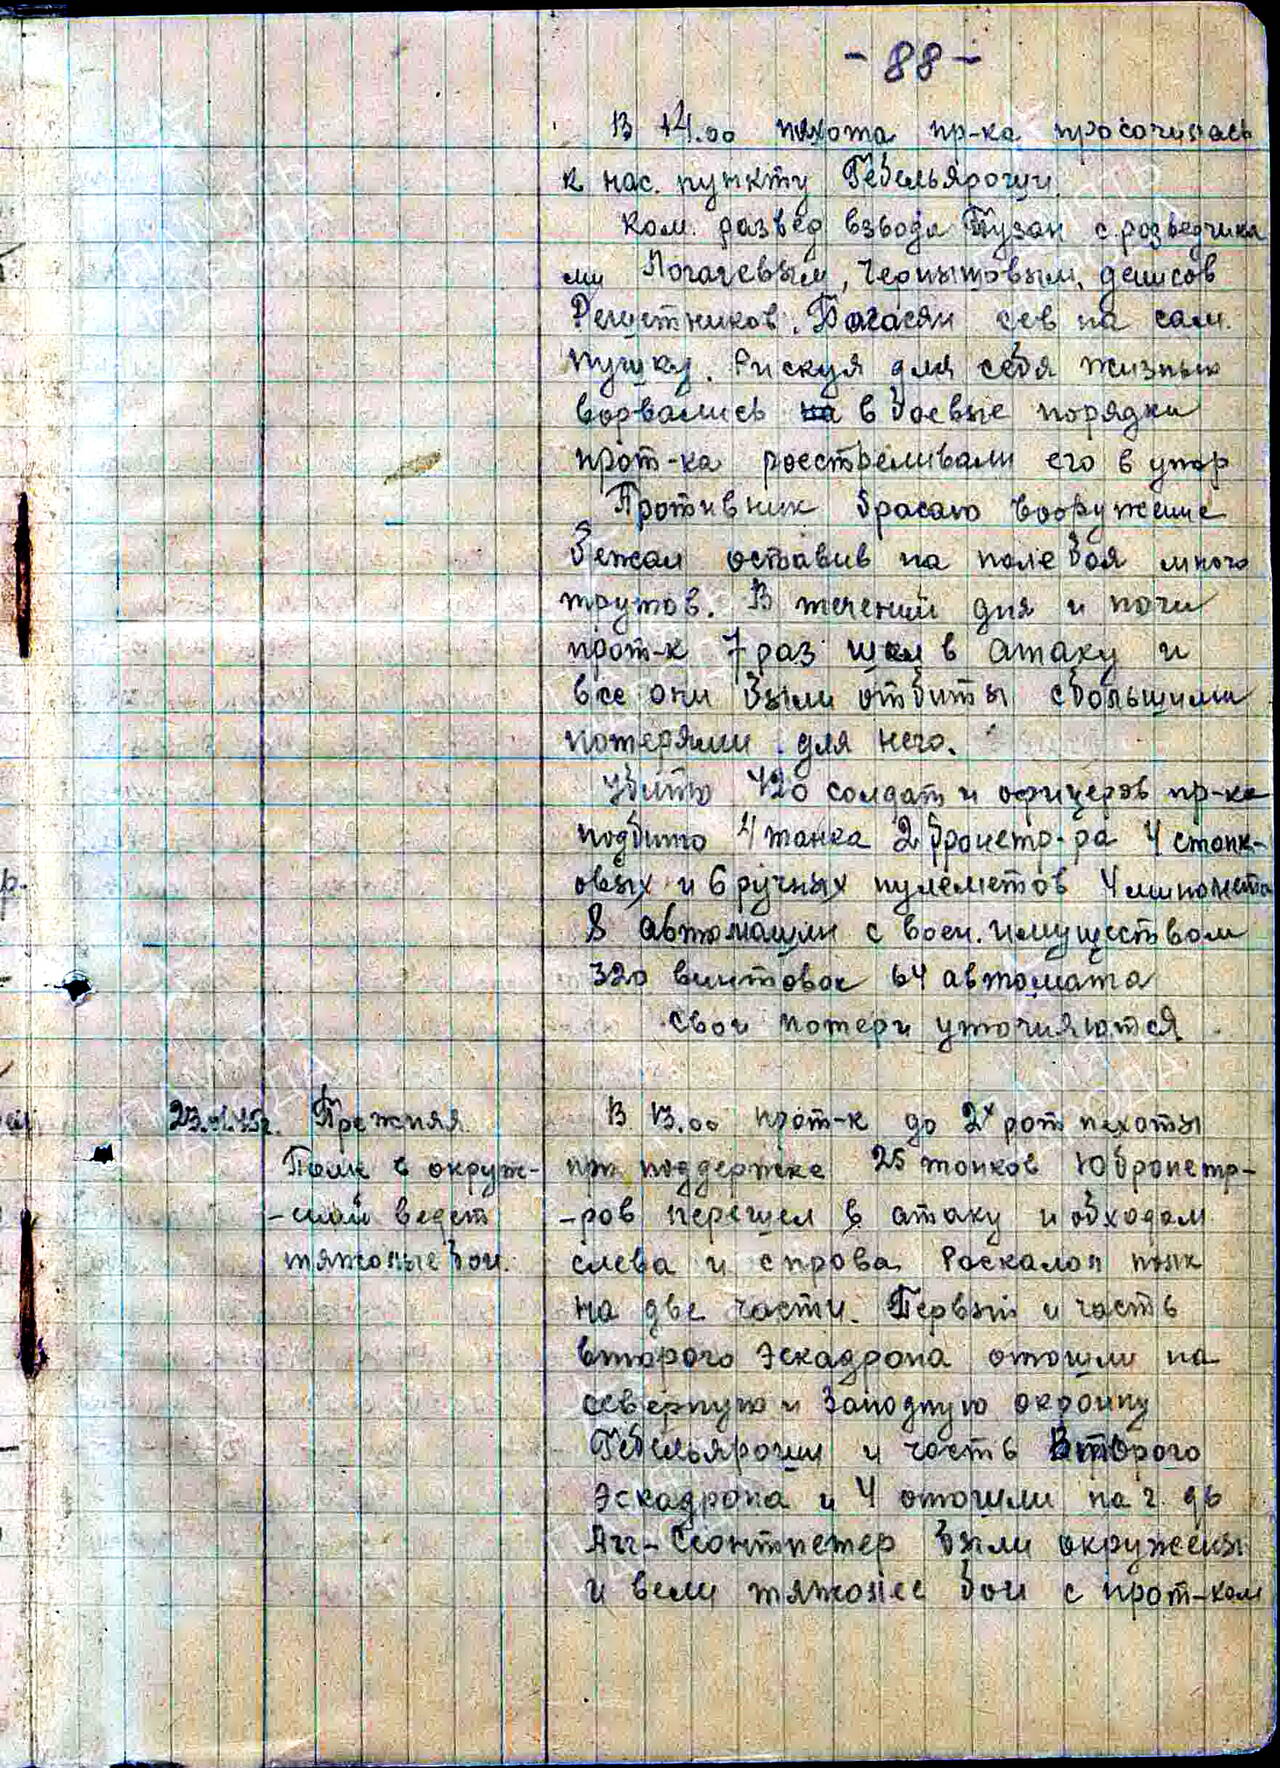 - 88 -
В 14.00 пехота пр-ка просочилась
к нас. пункту Гебельярошш
Ком. развед взвода Пузан с розведчика
ми Логачевым, Чернытовым, денисов
Решетников, Погасян сев на сам.
пушку. Рискуя для себя жизнью
ворвались в боевые порядки
прот-ка росстреливали его в упор
Противник бросаю вооружение
бежал оставив на поле боя много
трупов. В течений дня и ночи
прот-к 7 раз шел в атаку и
все они были отбиты с большими
потерями для него.
Убито 420 солдат и офицеров пр-ка
подбито 4 танка 2 бронетр-ра 4 станк-
овых и 6 ручных пулеметов 4 миномета
8 автомашин с воен. имуществом
320 винтовок 64 автомата
свои потери уточняются
23.01.45г. Прежняя
Полк в окруж-
-ений ведет
тяжолые бои.
В 13.00 прот-к до 2х рот пехоты
при поддержке 25 тонков 10 бронетр-
-ров перешел в атаку и обходом
слева и справа Роскалол полк
на две части. Первый и часть
второго эскадрона отошли на
северную и Западную окроину
Гебельярошш и часть Второго
эскадрона и 4 отошли на г. дв
Агг-Сзентпетер были окружены
и вели тяжолее бои с прот-ком